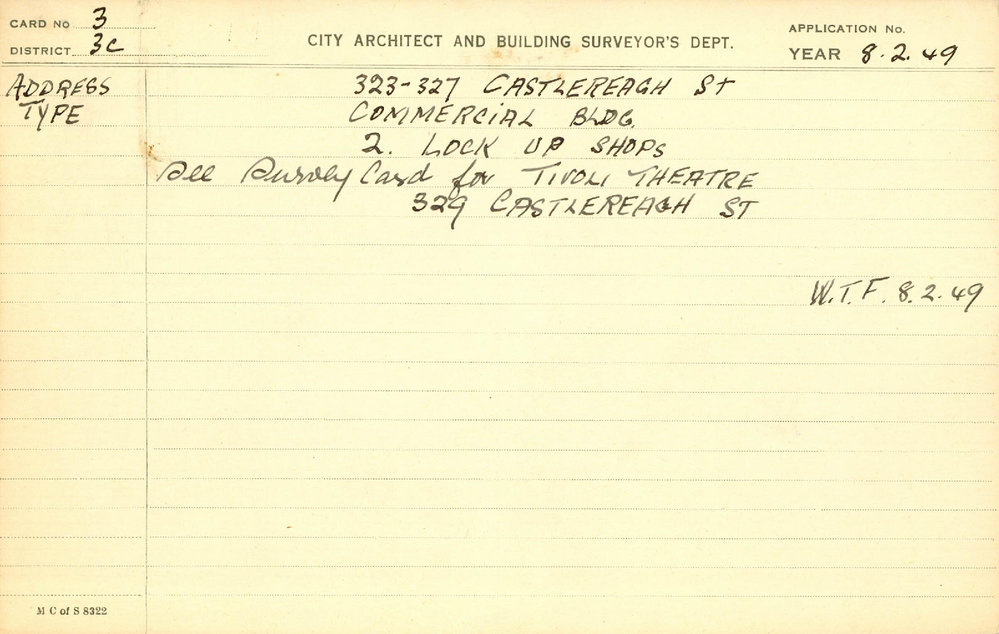 CARD No 3
DISTRICT 3c
CITY ARCHITECT AND BUILDING SURVEYOR'S DEPT.
APPLICATION No.
YEAR 8.2.49
ADDRESS 323-327 CASTLEREAGH ST
TYPE COMMERCIAL BLDG.
2. LOCK UP SHOPS
See Survey Card for TIVOLI THEATRE
329 CASTLEREAGH ST
W.T.F. 8.2.49
M C of S 8322